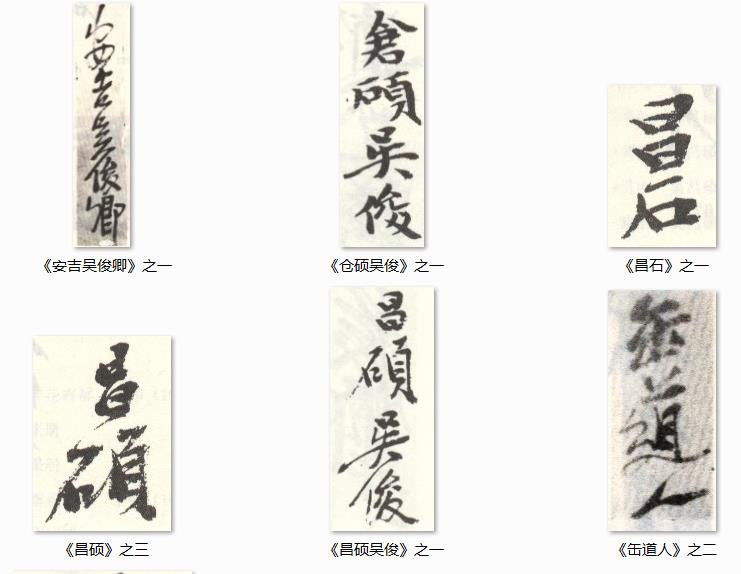 安吉吴俊卿
倉碩吴俊
昌石
《安吉吴俊卿》之一
《仓硕吴俊》之一
《昌石》之一
昌碩
昌碩吴俊
缶道人
《昌硕》之三
《昌硕吴俊》之一
《缶道人》之二